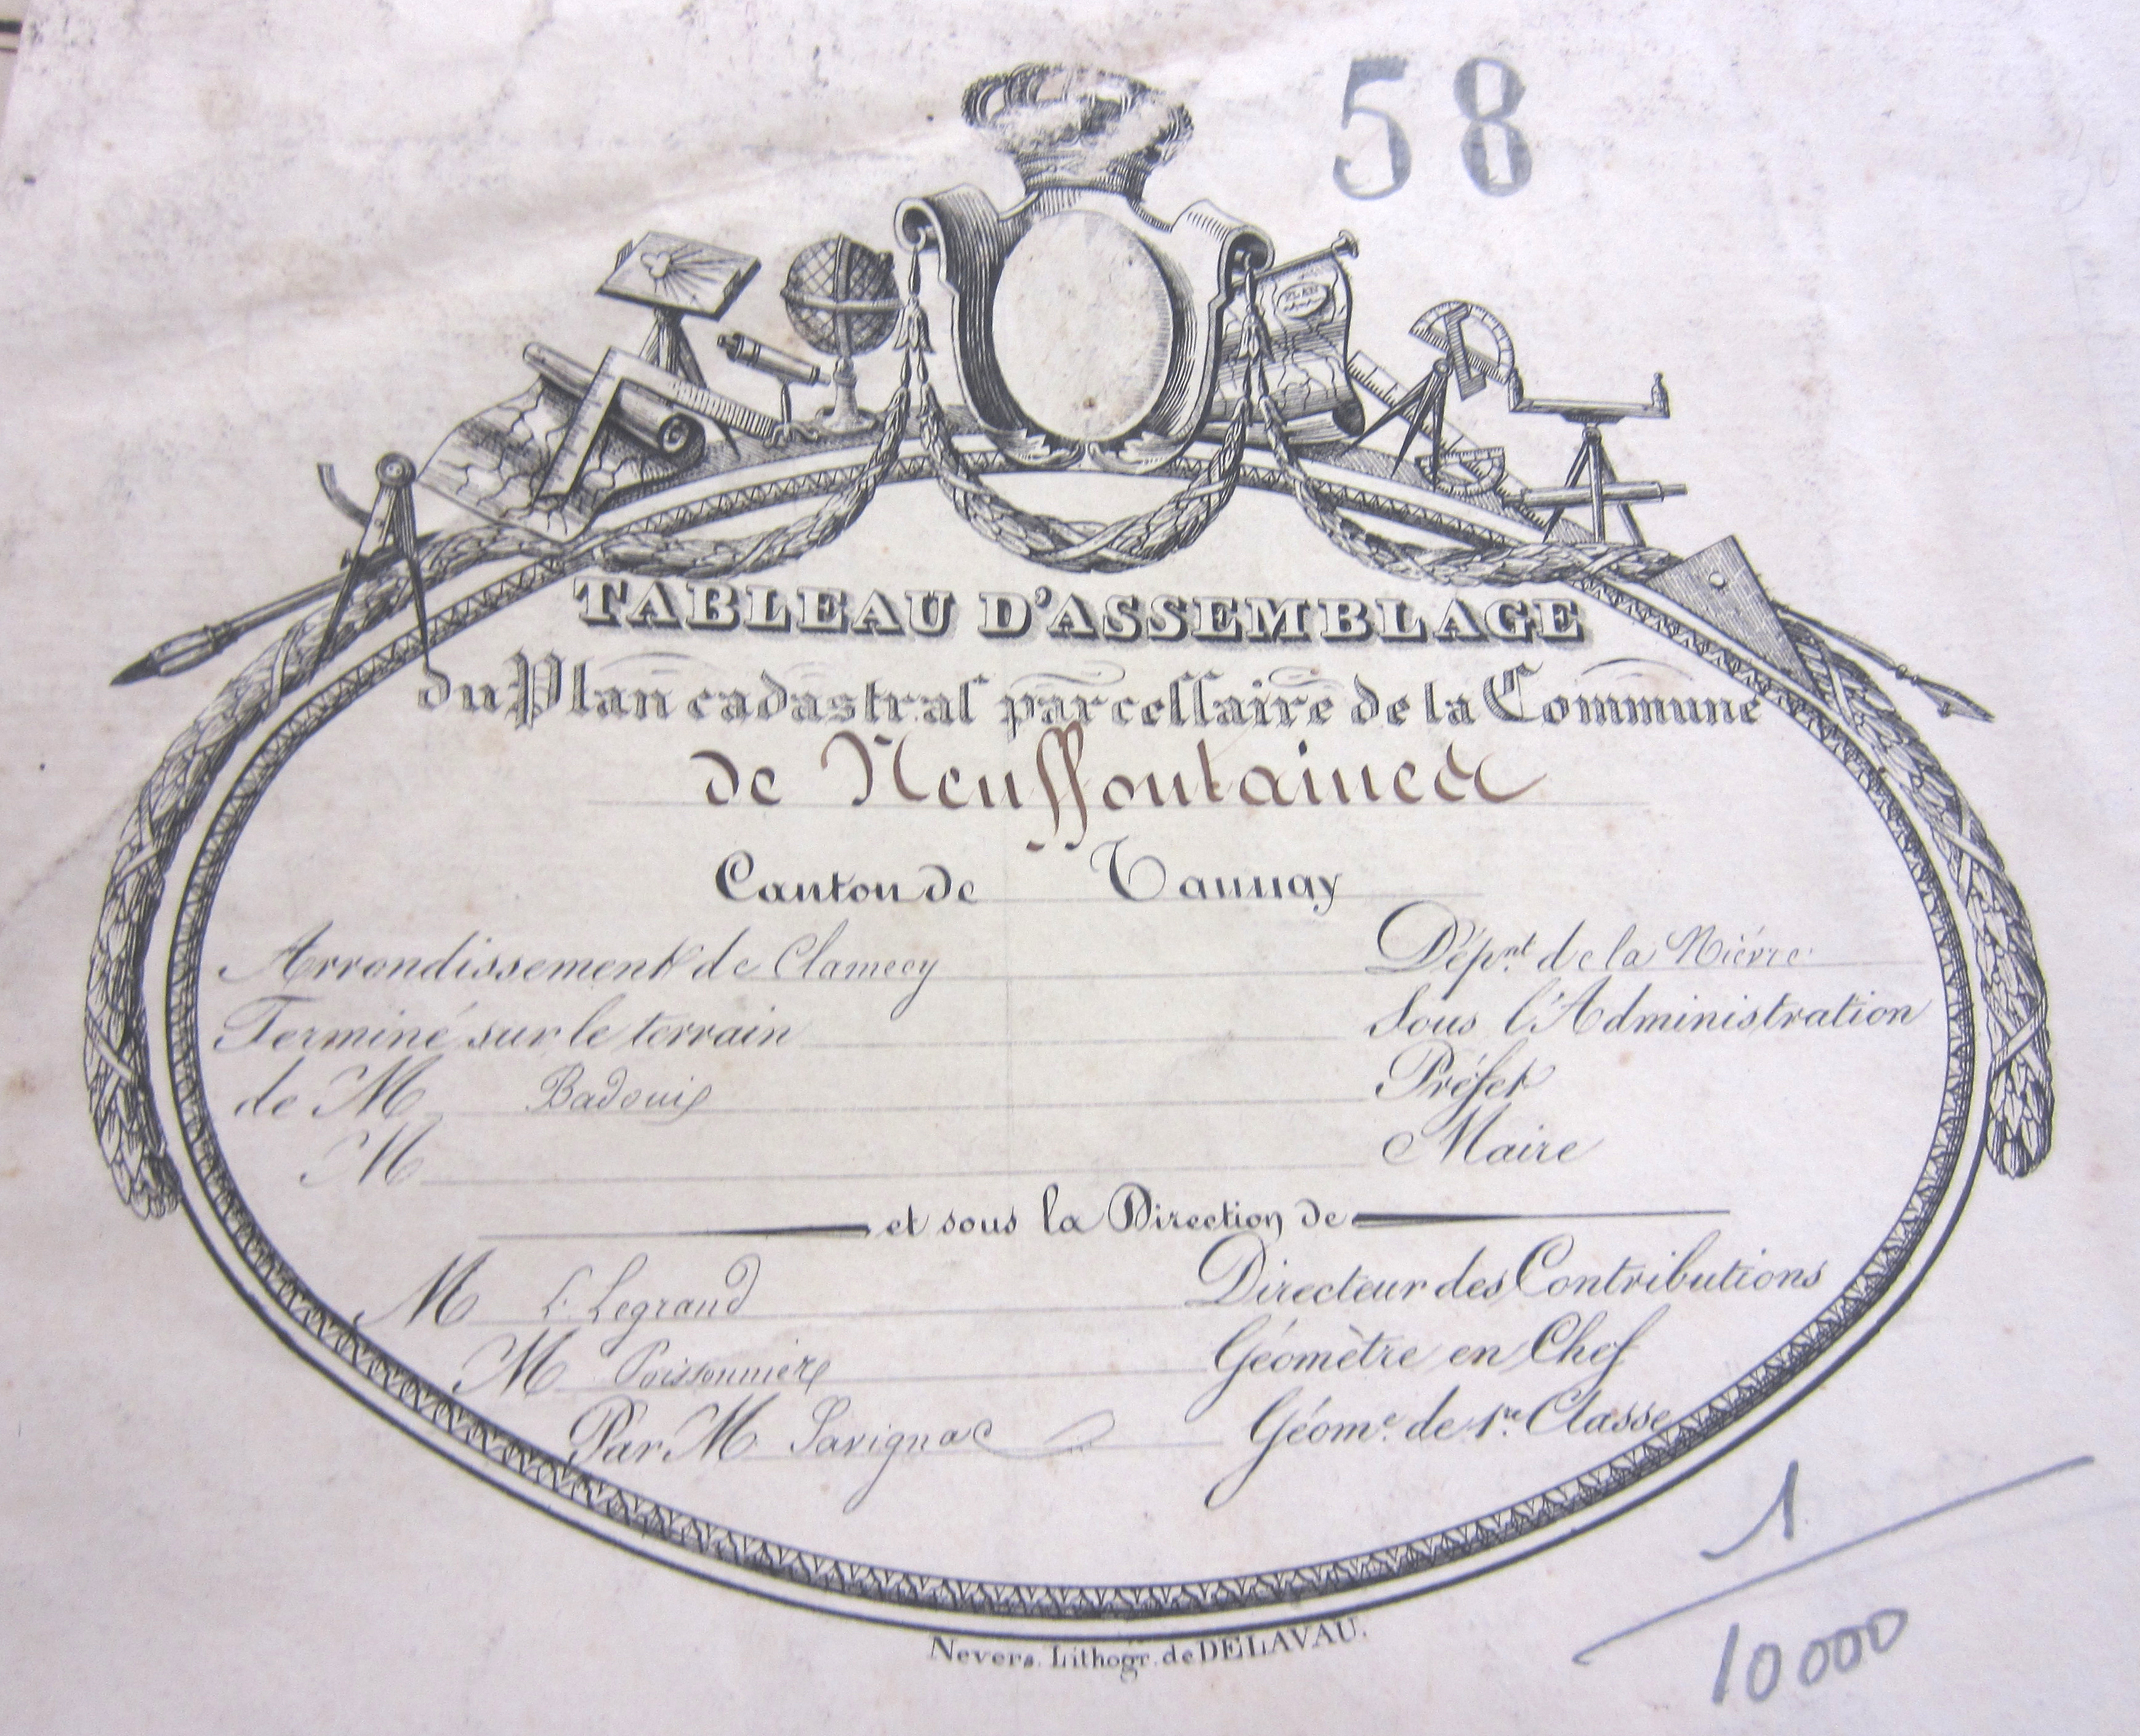 58
PLAN
TABLEAU D'ASSEMBLAGE
du Plan cadastral parcellaire de la Commune
de Neuffontaines
Canton de Tannay
Arrondissement de Clamecy Dépnt. de la Nièvre
Terminé sur le terrain Sous l'Administration
de M Badouix Préfet
M Maire
et sous la Direction de
M L. Legrand Directeur des Contributions
M Poissonnière Géomètre en Chef
Par M Savignac Géome. de 1re. Classe
Nevers. Lithogr. de DELAVAU.
1
10000